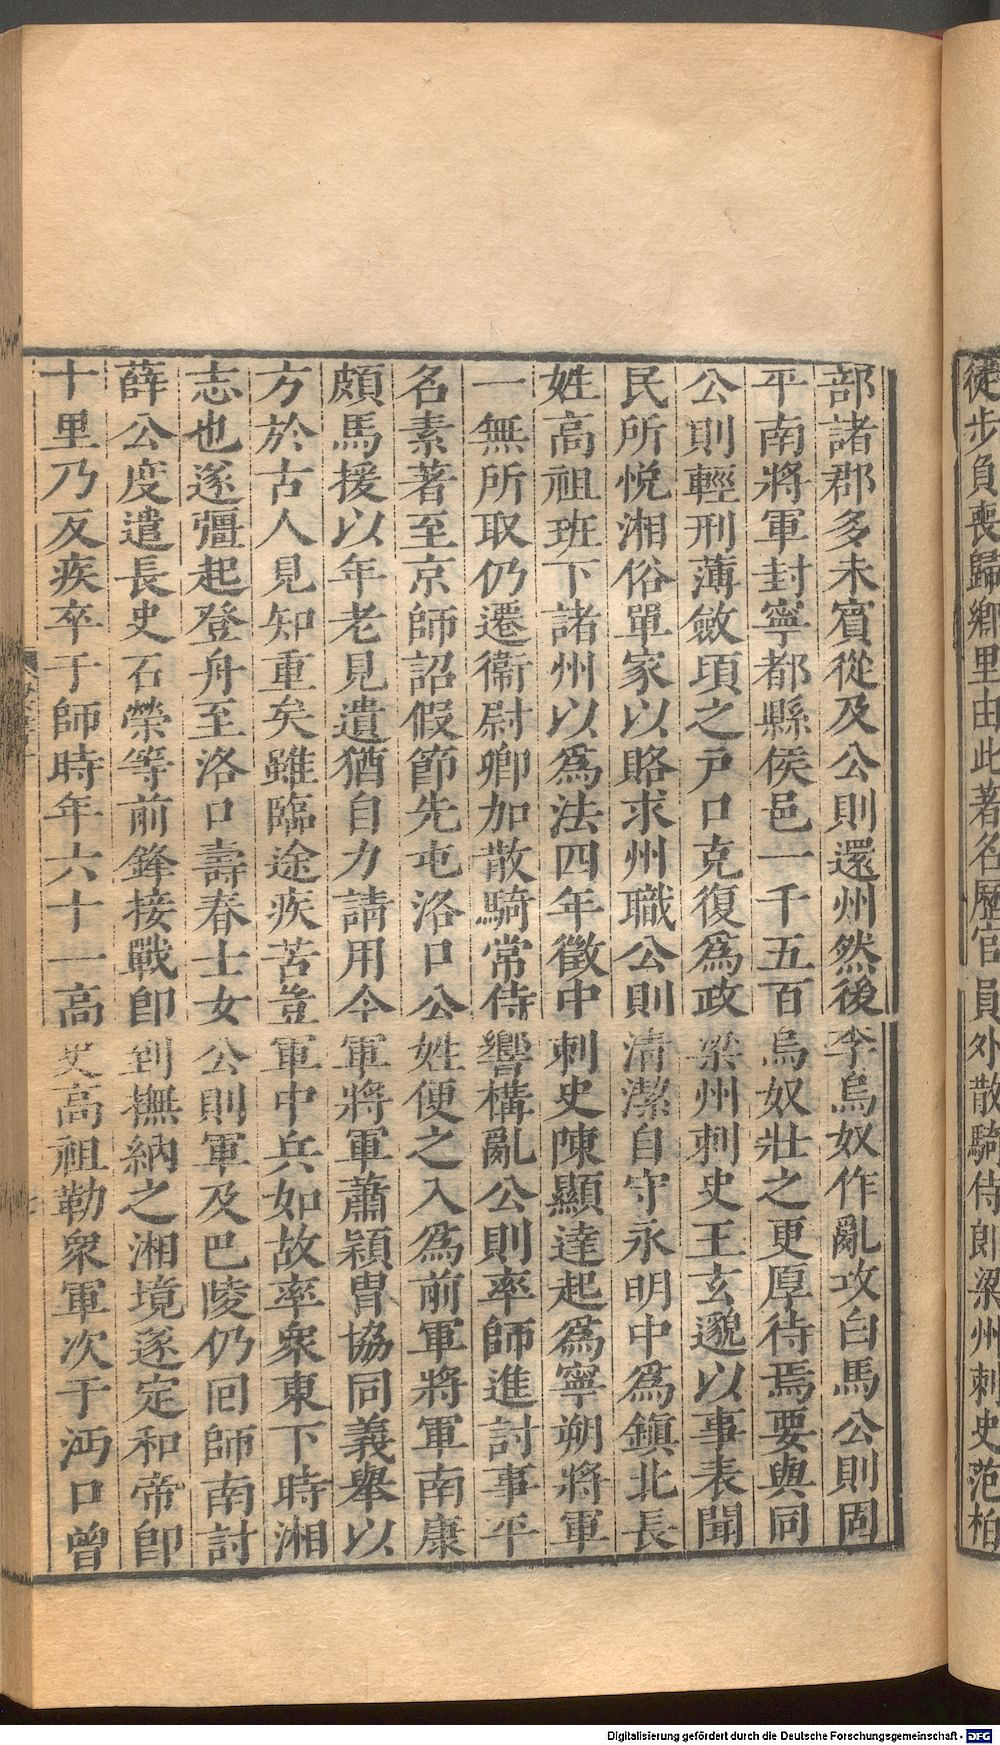 徒步負喪歸鄉里由此著名歷官員外散騎侍郎梁州刺史范柏
部諸郡多未賓從及公則還州然後李烏奴作亂攻白馬公則固
平南將軍封寧都縣侯邑一千五百烏奴壯之更厚待焉要與同
公則輕刑薄斂頃之戸口克復爲政梁州刺史王玄邈以事表聞
民所悅湘俗單家以賂求州職公則清潔自守永明中爲鎮北長
姓高祖班下諸州以爲法四年徵中刺史陳顯達起爲寧朔將軍
一無所取仍遷衞尉卿加散騎常侍響構亂公則率師進討事平
名素著至京師詔假節先屯洛口公姓便之入爲前軍將軍南康
頗馬援以年老見遺猶自力請用今軍將軍蕭穎冑協同義舉以
方於古人見知重矣雖臨途疾苦豈軍中兵如故率衆東下時湘
志也遂彊起登舟至洛口壽春士女公則軍及巴陵仍回師南討
薛公度遣長史石榮等前鋒接戰卽到撫納之湘境遂定和帝卽
十里乃反疾卒于師時年六十一高史高祖勒衆軍次于沔口曾
Digitalisierung gefördert durch die Deutsche Forschungsgemeinschaft - DFG